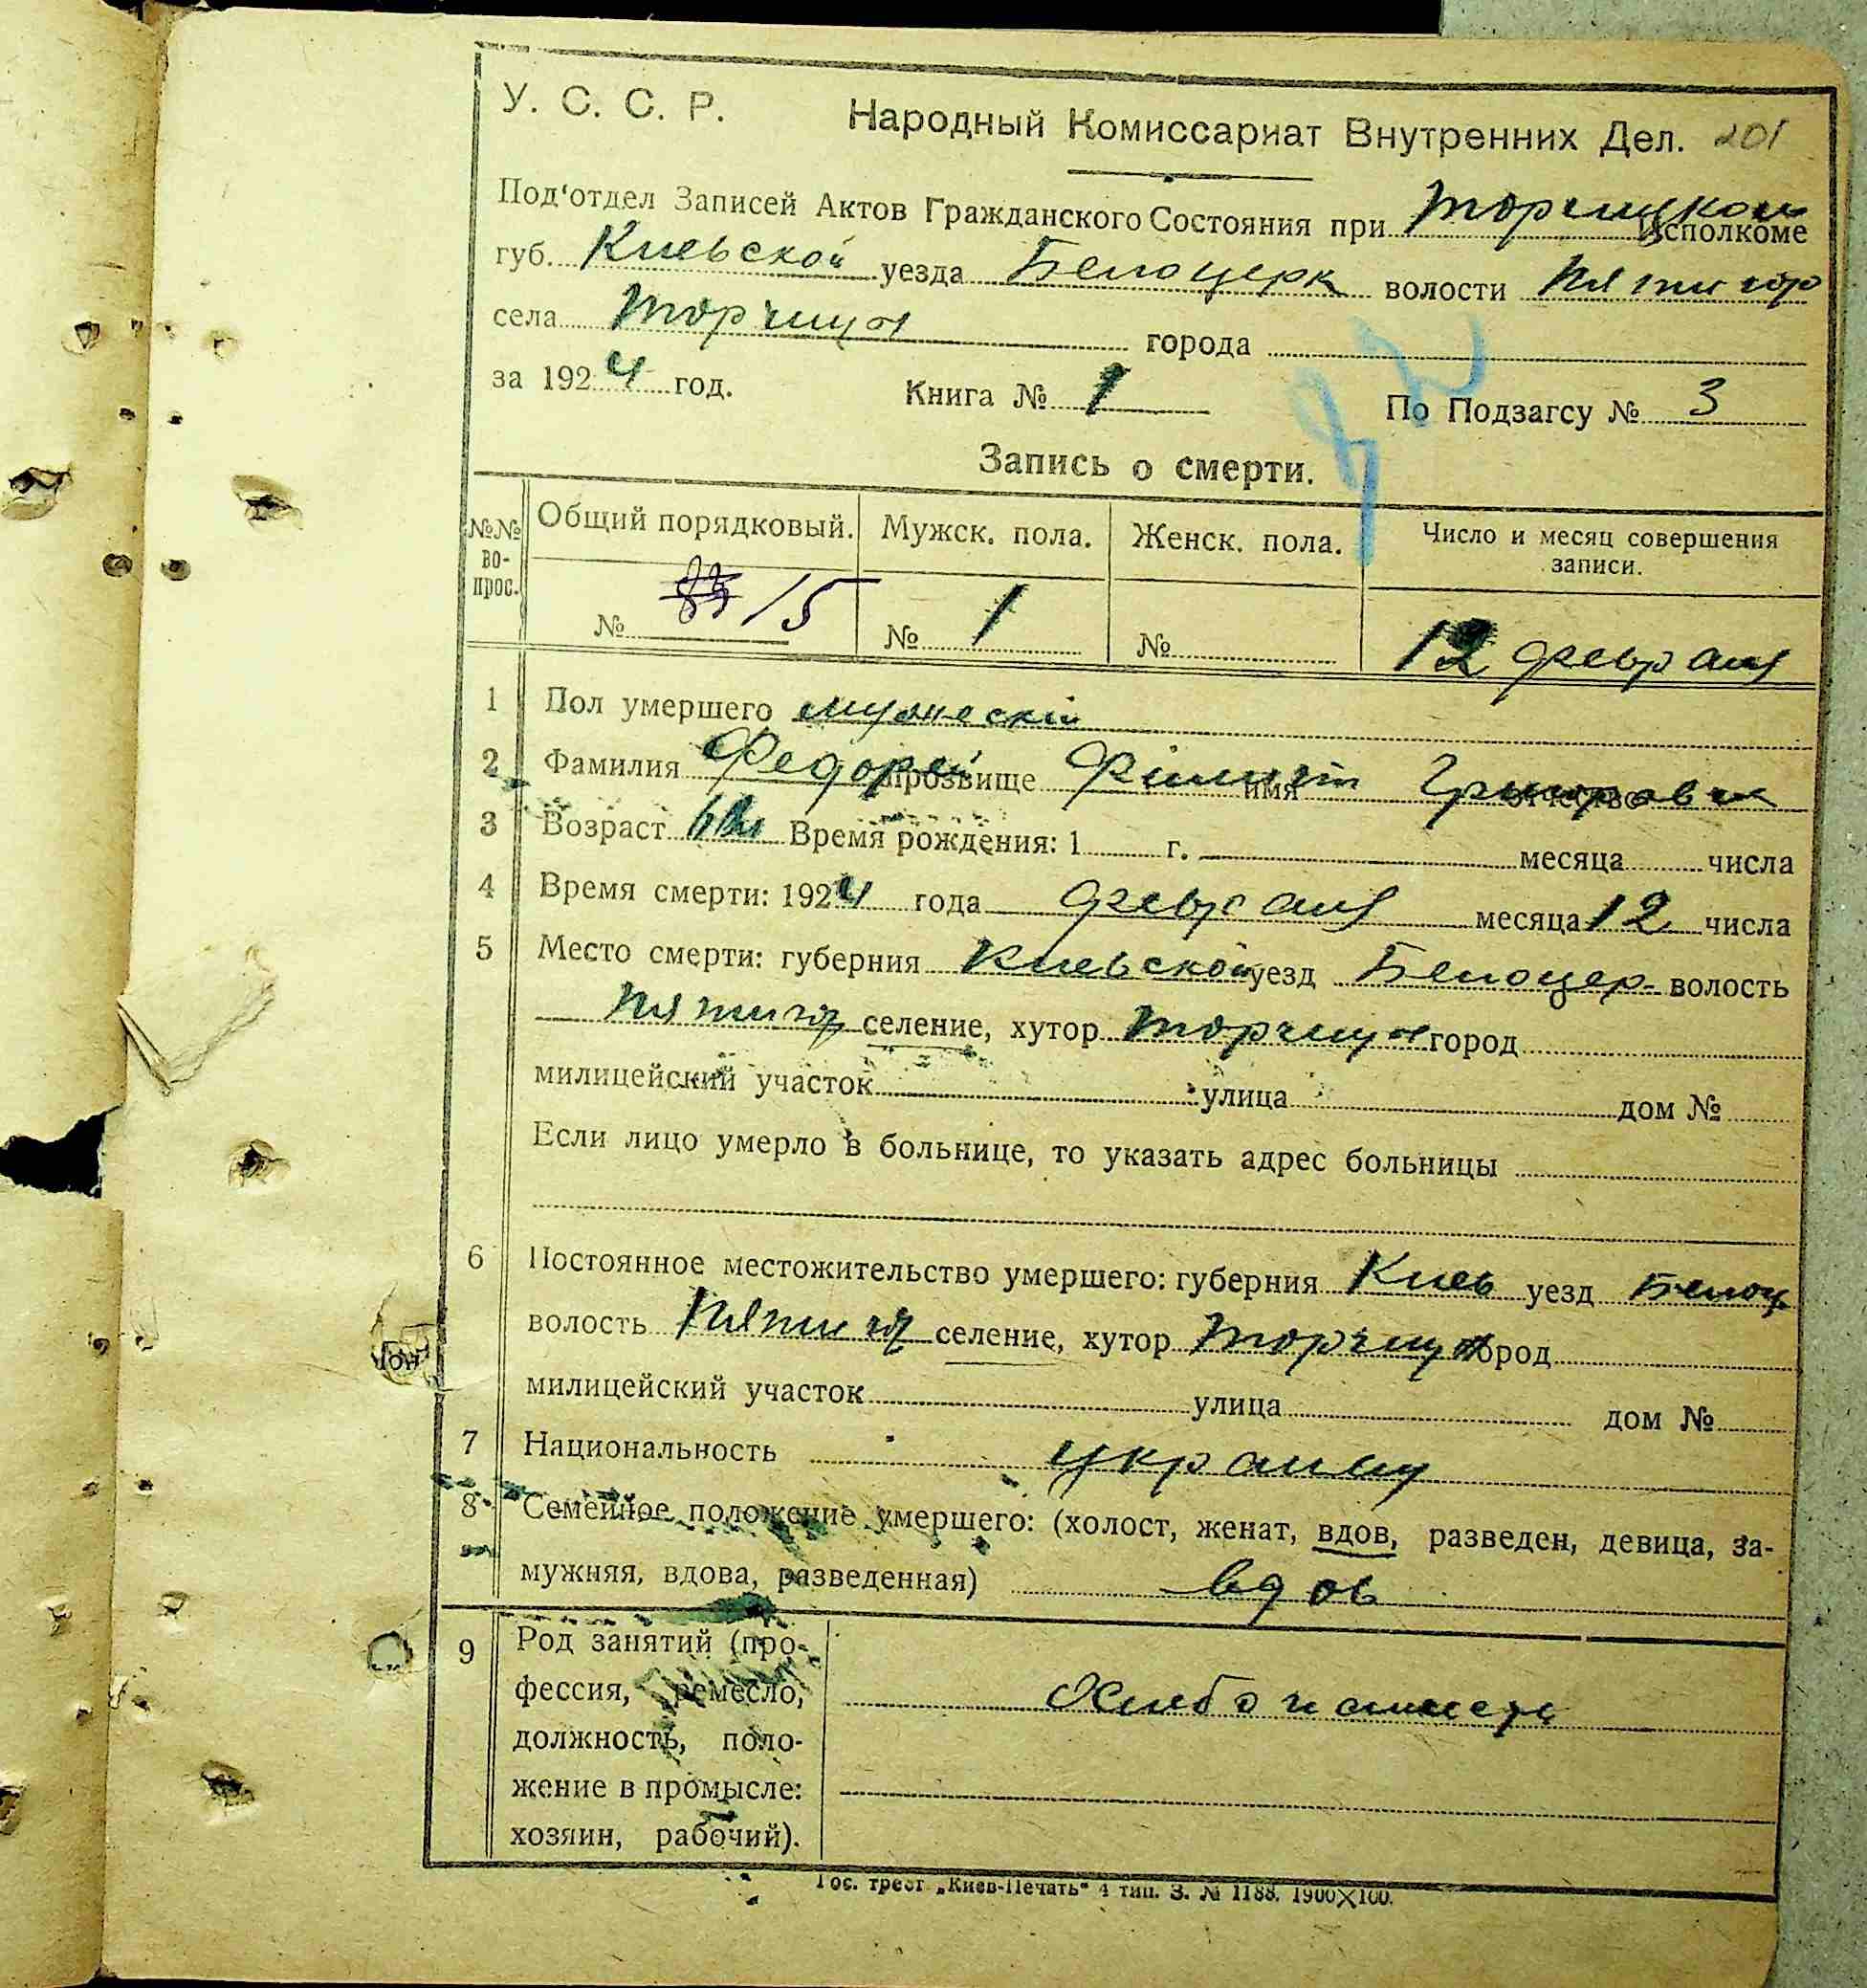 У. С. С. Р. Народный Комиссариат Внутренних Дел. 201
Под'отдел Записей Актов Гражданского Состояния при Торчицком Исполкоме
губ. Киевской уезда Белоцерк волости Пятигор
села Торчица города
за 1924 год. Книга № 1 По Подзагсу № 3
Запись о смерти.
№№ во- прос. Общий порядковый. Мужск. пола. Женск. пола. Число и месяц совершения записи.
№ 15 № 1 № 12 февраля
1 Пол умершего мужескій
2 Фамилия Федорей прозвище Филип имя Григоров отчество
3 Возраст Время рождения: 1 г. месяца числа
4 Время смерти: 1924 года февраля месяца 12 числа
5 Место смерти: губерния Киевской уезд Белоцер- волость
Пятигор селение, хутор Торчица город
милицейский участок улица дом №
Если лицо умерло в больнице, то указать адрес больницы
6 Постоянное местожительство умершего: губерния Киев уезд Белоц
волость Пятигор селение, хутор Торчица город
милицейский участок улица дом №
7 Национальность украинц
8 Семейное положение умершего: (холост, женат, вдов, разведен, девица, за-
мужняя, вдова, разведенная) вдов
9 Род занятий (про-
фессия, ремесло, Хлебопашець
должность, поло-
жение в промысле:
хозяин, рабочий).
Гос. трест „Киев-Печать“ 4 тип. З. № 1188. 1900×100.